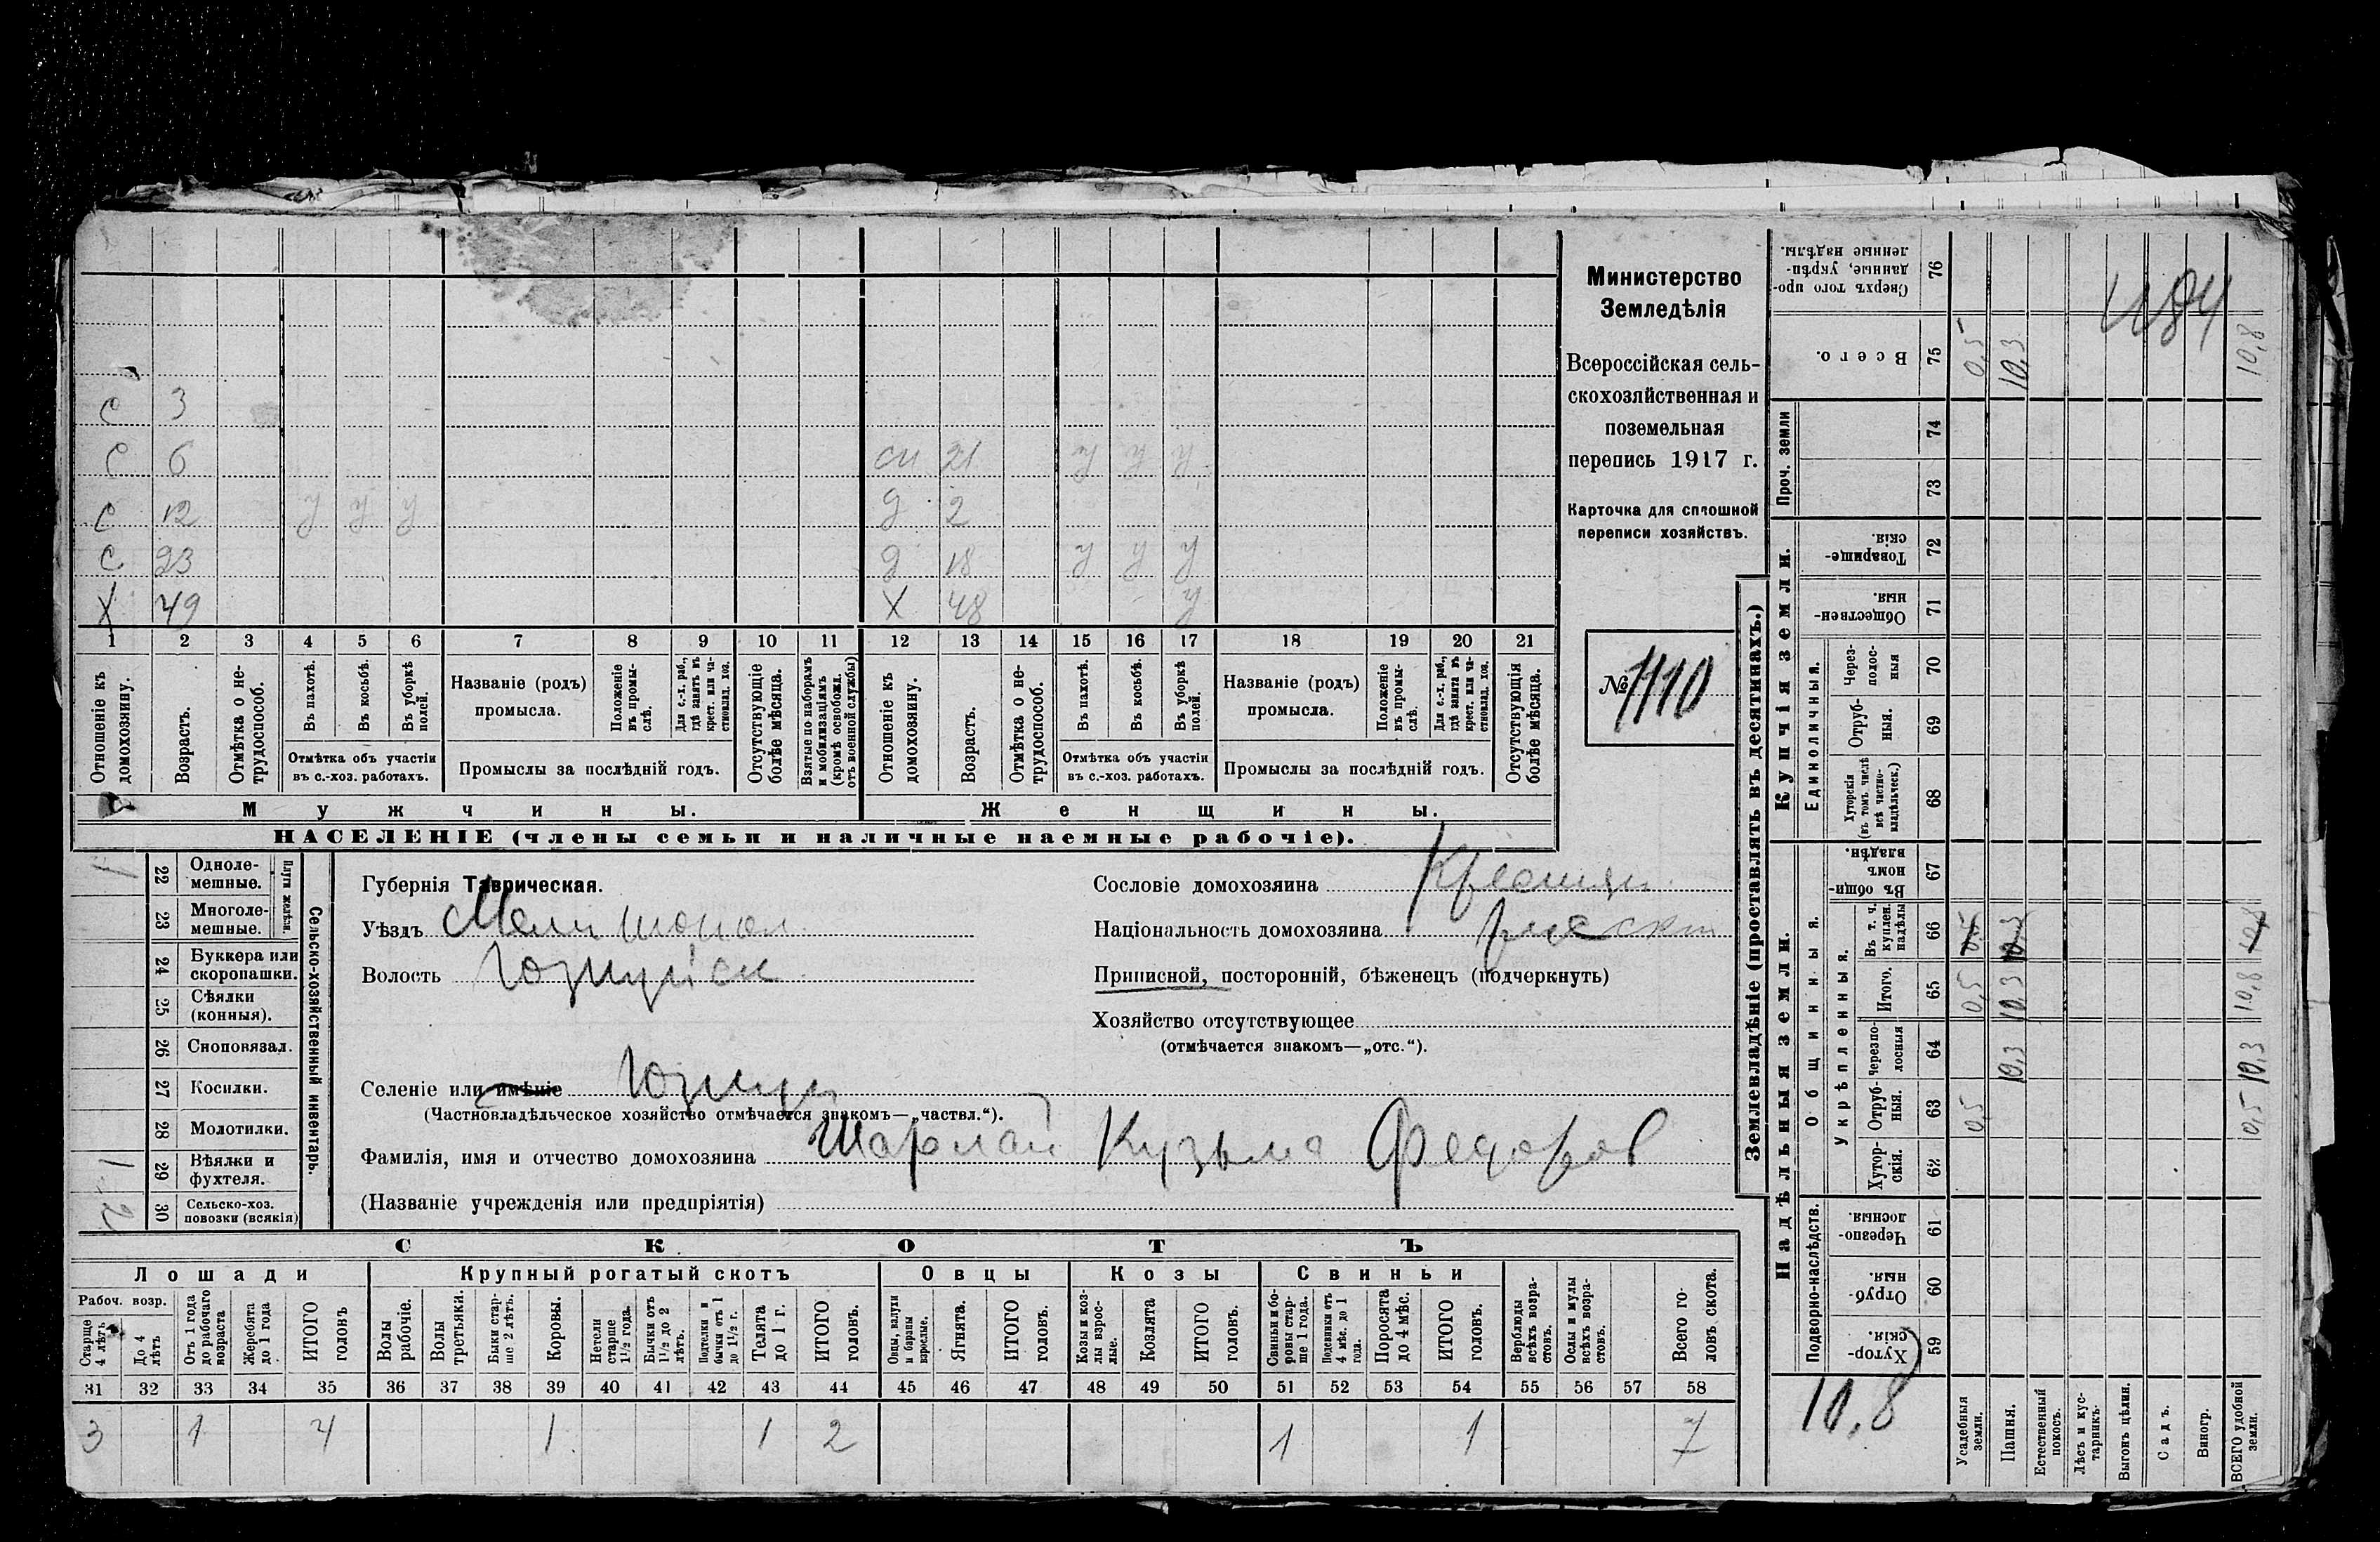 С 3
С 6 сн 21 у у у
С 12 у у у д 2
С 23 д 18 у у у
Х 49 Х 48 у
1 2 3 4 5 6 7 8 9 10 11 12 13 14 15 16 17 18 19 20 21
Отношеніе къ домохозяину.
Возрастъ.
Отмѣтка о не-трудоспособ.
Въ пахотѣ.
Въ косьбѣ.
Въ уборкѣ полей.
Отмѣтка объ участіи въ с.-хоз. работахъ.
Названіе (родъ) промысла.
Положеніе въ промы-слѣ.
Для с.-х. раб., гдѣ занятъ въ крест. или ча-стновлад. хоз.
Промыслы за послѣдній годъ.
Отсутствующіе болѣе мѣсяца.
Взятые по наборамъ и мобилизаціямъ (кромѣ освобожд. отъ военной службы)
Отношеніе къ домохозяину.
Возрастъ.
Отмѣтка о не-трудоспособ.
Въ пахотѣ.
Въ косьбѣ.
Въ уборкѣ полей.
Отмѣтка объ участіи въ с.-хоз. работахъ.
Названіе (родъ) промысла.
Положеніе въ промы-слѣ.
Для с.-х. раб., гдѣ занята въ крест. или ча-стновлад. хоз.
Промыслы за послѣдній годъ.
Отсутствующія болѣе мѣсяца.
Мужчины.
Женщины.
НАСЕЛЕНІЕ (члены семьи и наличные наемные рабочіе).
Министерство
Земледѣлія
Всероссійская сель-
скохозяйственная и
поземельная
перепись 1917 г.
Карточка для сплошной
переписи хозяйствъ.
№ 1110
Сельско-хозяйственный инвентарь.
Плуги желѣзн.
22 Одноле-мешные. 1
23 Многоле-мешные.
24 Буккера или скоропашки.
25 Сѣялки (конныя).
26 Сноповязал.
27 Косилки.
28 Молотилки.
29 Вѣялки и фухтеля. 1
30 Сельско-хоз. повозки (всякія)
Губернія Таврическая.
Уѣздъ Мелитопол.
Волость
Селеніе или имѣніе
(Частновладѣльческое хозяйство отмѣчается знакомъ—„частвл.“).
Фамилія, имя и отчество домохозяина Шарлай Кузьма Федоров
(Названіе учрежденія или предпріятія)
Сословіе домохозяина Крестьян.
Національность домохозяина русск
Приписной, посторонній, бѣженецъ (подчеркнуть)
Хозяйство отсутствующее
(отмѣчается знакомъ—„отс.“).
СКОТЪ
Лошади Крупный рогатый скотъ Овцы Козы Свиньи
Рабоч. возр.
Старше 4 лѣтъ
До 4 лѣтъ
Отъ 1 года до рабочаго возраста
Жеребята до 1 года
ИТОГО головъ
Волы рабочіе.
Волы третьяки.
Быки стар-ше 2 лѣтъ.
Коровы.
Нетели старше 1 1/2 года.
Бычки отъ 1 1/2 до 2 лѣтъ.
Подтелки и бычки отъ 1 до 1 1/2 г.
Телята до 1 г.
ИТОГО головъ.
Овцы, валухи и бараны взрослые.
Ягнята.
ИТОГО головъ.
Козы и коз-лы взрос-лые.
Козлята
ИТОГО головъ.
Свиньи и бо-ровы стар-ше 1 года.
Подсвинки отъ 4 мѣс. до 1 года.
Поросята до 4 мѣс.
ИТОГО головъ.
Верблюды всѣхъ возра-стовъ.
Ослы и мулы всѣхъ возра-стовъ.
Всего го-ловъ скота.
31 32 33 34 35 36 37 38 39 40 41 42 43 44 45 46 47 48 49 50 51 52 53 54 55 56 57 58
3 1 4 1 1 2 1 1 7
Землевладѣніе (проставлять въ десятинахъ.)
Надѣльныя земли.
Купчія земли.
Проч. земли
Подворно-наслѣдств.
Общинныя.
Укрѣпленныя.
Единоличныя.
76 Сверхъ того про-данные, укрѣп-ленные надѣлы.
75 Всего. 0,5 10,3 10,8
74
73
72 Товарище-скія.
71 Обществен-ныя.
70 Через-полос-ныя
69 Отруб-ныя.
68 Хуторскія (въ томъ числѣ всѣ частно-владѣльческ.)
67 Въ общин-номъ владѣн.
66 Въ т. ч. куплен. надѣлы
65 Итого. 0,5 10,3 10,8
64 Черезпо-лосныя 10,3 10,3
63 Отруб-ныя. 0,5 0,5
62 Хутор-скія.
61 Черезпо-лосныя.
60 Отруб-ныя.
59 Хутор-скія.
10,8
Усадебныя земли.
Пашня.
Естественный покосъ.
Лѣсъ и кус-тарникъ.
Выгонъ цѣлин.
Садъ.
Виногр.
ВСЕГО удобной земли.